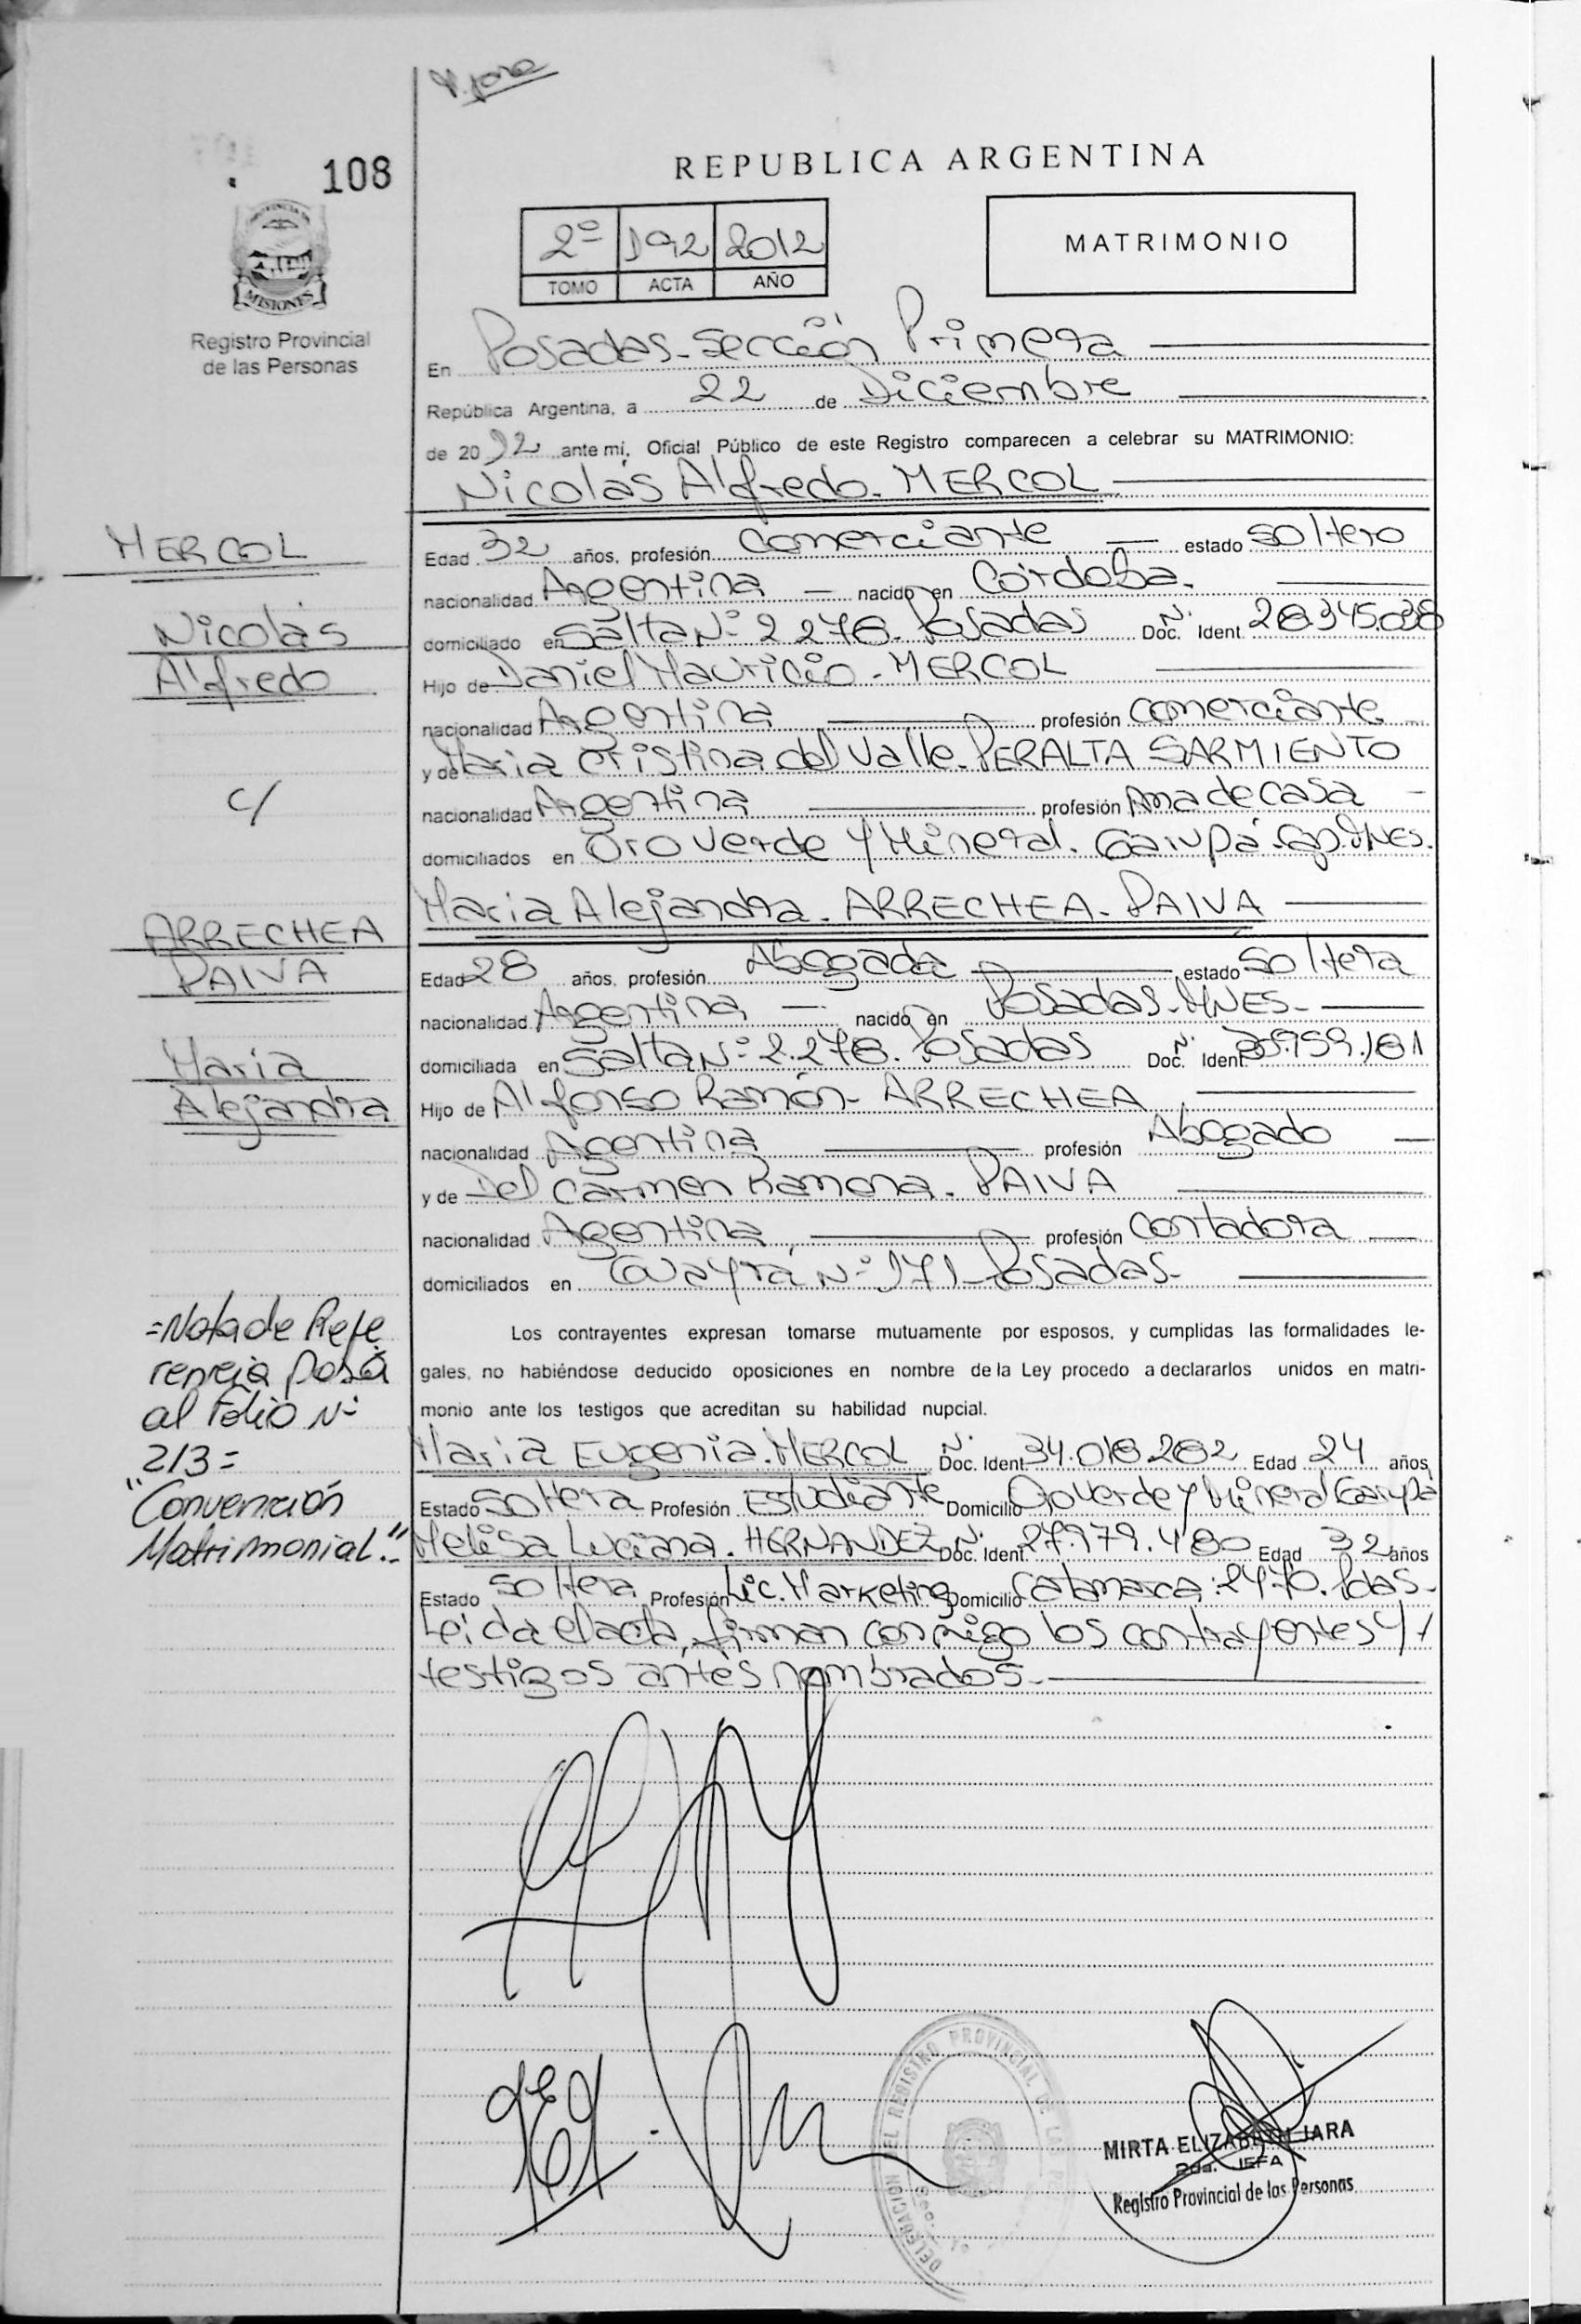 108
PROVINCIA DE
MISIONES
Registro Provincial
de las Personas
REPUBLICA ARGENTINA
2º 192 2012
TOMO ACTA AÑO
MATRIMONIO
En Posadas - Sección Primera
República Argentina, a 22 de Diciembre
de 2012 ante mí, Oficial Público de este Registro comparecen a celebrar su MATRIMONIO:
Nicolás Alfredo - MERCOL
MERCOL
Nicolás
Alfredo
Edad 32 años, profesión Comerciante estado soltero
nacionalidad Argentina nacido en Córdoba.
domiciliado en Salta Nº 2.278. Posadas N. Doc. Ident. 28.345.038
Hijo de Daniel Mauricio - MERCOL
nacionalidad Argentina profesión Comerciante
y de Maria Cristina del Valle - PERALTA SARMIENTO
nacionalidad Argentina profesión Ama de casa
domiciliados en Oro Verde y Mineral. Garupá
c/
Maria Alejandra - ARRECHEA - PAIVA
ARRECHEA
PAIVA
Maria
Alejandra
Edad 28 años, profesión Abogada estado soltera
nacionalidad Argentina nacido en Posadas - MNES -
domiciliada en Salta Nº 2.278. Posadas N. Doc. Ident.
Hijo de Alfonso Ramón - ARRECHEA
nacionalidad Argentina profesión Abogado
y de Del Carmen Ramona - PAIVA
nacionalidad Argentina, profesión Contadora
domiciliados en Nº 171 - Posadas -
Los contrayentes expresan tomarse mutuamente por esposos, y cumplidas las formalidades le-
gales, no habiéndose deducido oposiciones en nombre de la Ley procedo a declararlos unidos en matri-
monio ante los testigos que acreditan su habilidad nupcial.
=Nota de Refe
rencia pasa
al Folio Nº
213=
"Convención
Matrimonial."
Maria Eugenia - MERCOL N. Doc. Ident. 34.018.282 Edad 24 años
Estado soltera Profesión Estudiante Domicilio Oro Verde y Mineral Garupá
Melisa Luciana - HERNANDEZ N. Doc. Ident. 27.979.480 Edad 32 años
Estado soltera Profesión Lic. Marketing Domicilio Catamarca: 2470. Pdas -
Leída el acta, firman conmigo los contrayentes y
testigos antes nombrados -
DELEGACIÓN DEL REGISTRO PROVINCIAL DE LA
MIRTA ELIZABETH JARA
2da. JEFA
Registro Provincial de las Personas